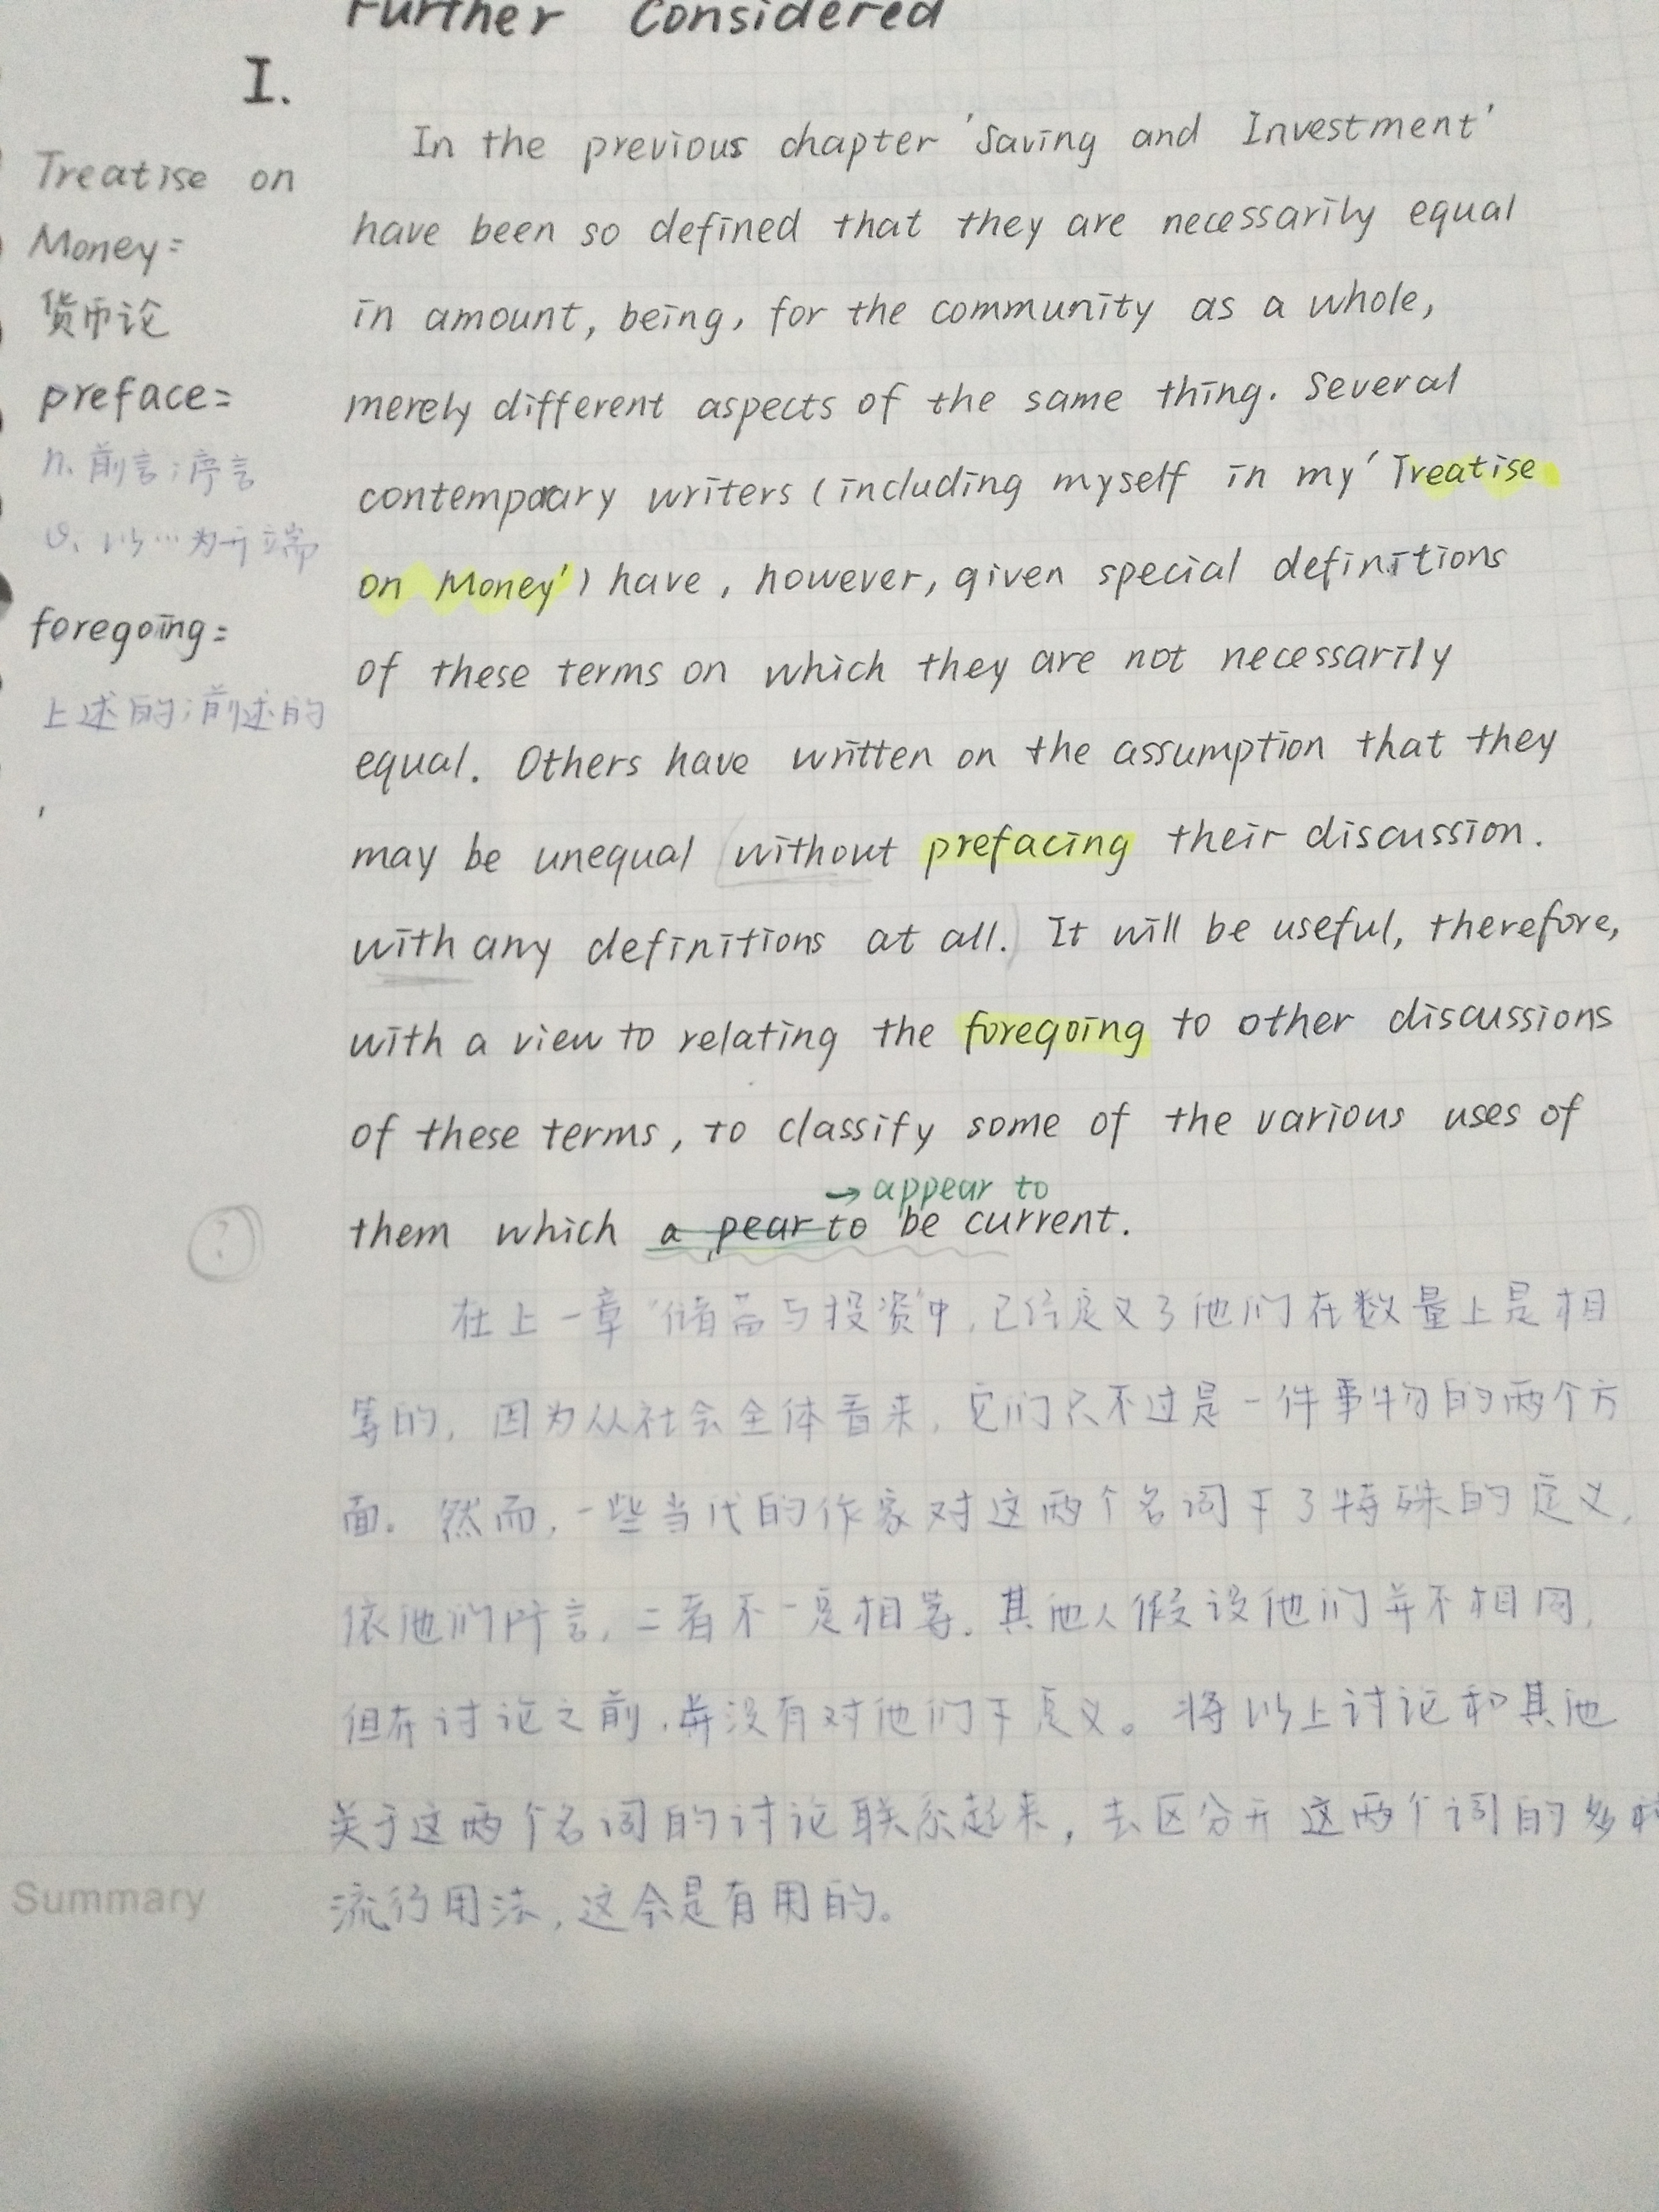 Further Considered
I.
Treatise on
Money=
货币论
preface=
n. 前言；序言
v. 以…为开端
foregoing=
上述的；前述的
In the previous chapter 'Saving and Investment'
have been so defined that they are necessarily equal
in amount, being, for the community as a whole,
merely different aspects of the same thing. Several
contemporary writers (including myself in my 'Treatise
on Money') have, however, given special definitions
of these terms on which they are not necessarily
equal. Others have written on the assumption that they
may be unequal (without prefacing their discussion.
with any definitions at all.) It will be useful, therefore,
with a view to relating the foregoing to other discussions
of these terms, to classify some of the various uses of
→ appear to
? them which a pear to be current.
在上一章"储蓄与投资"中，已经定义了他们在数量上是相
等的，因为从社会全体看来，它们只不过是一件事物的两个方
面。然而，一些当代的作家对这两个名词下了特殊的定义，
依他们所言，二者不一定相等。其他人假设他们并不相同，
但在讨论之前，并没有对他们下定义。将以上讨论和其他
关于这两个名词的讨论联系起来，去区分开这两个词的多种
流行用法，这会是有用的。
Summary